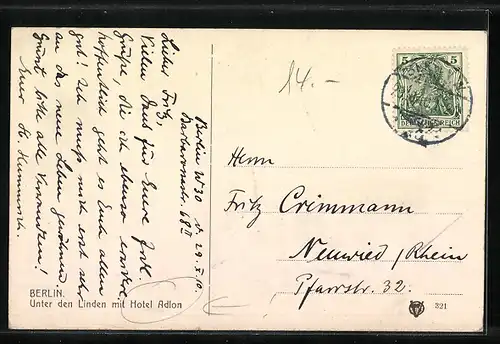 Berlin W 30 d. 29. X. 10.
Barbarossastr. 68 II
Lieber Fritz,
Vielen Dank für Eure
Grüsse, die ich ebenso erwidere.
Hoffentlich geht es Euch allen
gut! Ich muß mich erst sehr
an das neue Leben gewöhnen.
Grüsst bitte alle Verwandten!
Euer
BERLIN.
Unter den Linden mit Hotel Adlon
14.-
5 5
DEUTSCHES REICH
Herrn
Fritz Crimmann
Neuwied / Rhein
Pfarrstr. 32.
321